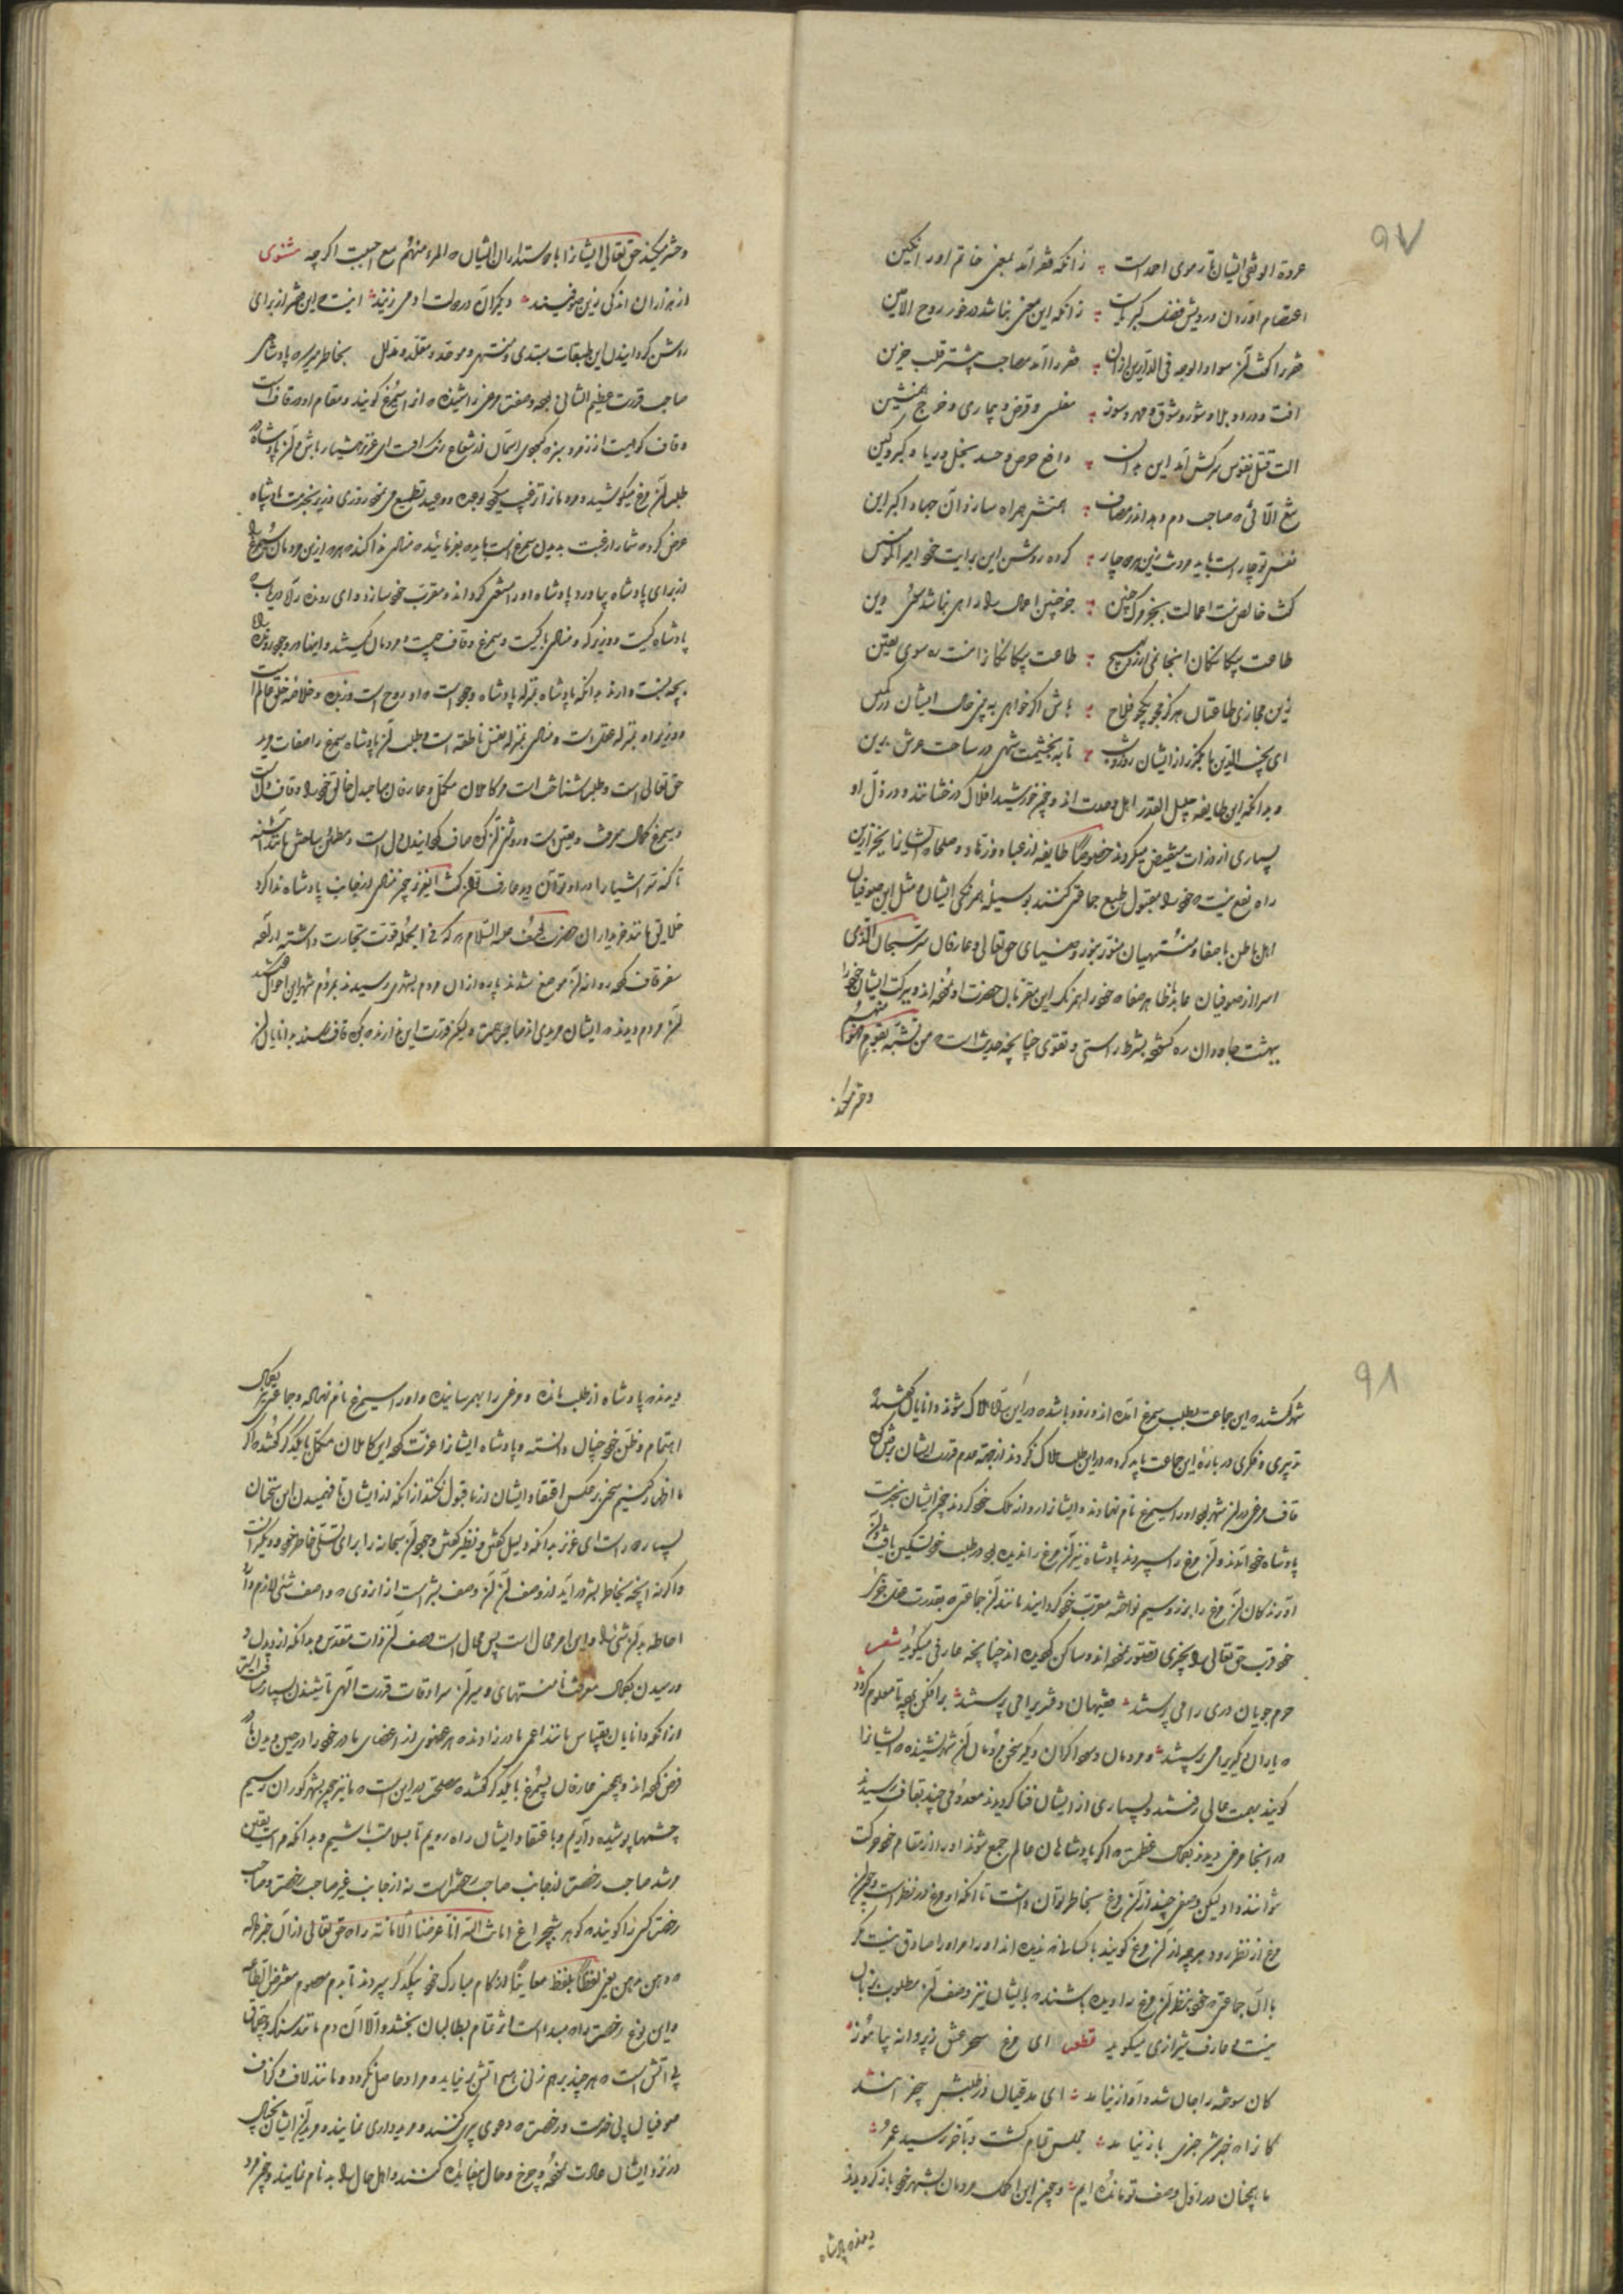 ٩٧
عروة الوثقی ایشان تار موی احمد است ؞ زانکه فقر آمد بمعنی خاتم او را نکین
اعتصام او زان درویش فضل کبریاست ؞ زانکه این معنی نباشد در خور روح الامین
فقر را کفت آن سواد الوجه فی الدارین ازان ؞ فقر را آمد مصاحب پیشتر قلب حزین
افت و درد و بلا و شور و شوق و مهر و سوز ؞ مفلسی و قرض و بیماری و خرج همنشین
الت قتل نفوس سرکش آمد این بدان ؞ دافع حرص و حسد بخل و ریا و کبر و کین
همتش همراه سازد آن جهاد اکبر این
نفس تو چار است باید مردنت زین مرده چار ؞ کرده روشن این برایت خود امیر المؤمنین
طاعت بیکانکان انجا نمی ارزد بهیچ ؞ طاعت بیکانکانرا نیست ره سوی یقین
زین مجازی طاعتان هرکز مجو یکجو فلاح ؞ باش اکر خواهی به بینی حال ایشان در کمین
ای نجیب الدین تا بکریز از ایشان روز و شب ؞ تا به بخشیمت شهی در ساحت عرش برین
و بدانکه این طایفه جلیل القدر اهل وحدت اند و چون خورشید افلاک درخشانند و در دل او
بسیاری از ذرات مستفیض میکردند خصوصاً طایفه از عباد و زهاد و صلحا که ایشانرا بغیر ازین
راه نفع نیست که خود را مقبول طبع جماعتی کنند بوسیله همرنکی ایشان مثل این صوفیان
اهل باطن با صفا و منتهیان منور بنور و ضیای حق تعالی و عارفان سر سبحان الذی
اسرا از صوفیان عابد بظاهر صفا که خود را همرنک این مقربان حضرت او نموده اند و ببرکت ایشان خود را
بهشت جاودان ره کشوده بشرط راستی و تقوی چنانچه حدیث است من تشبه بقوم فهو منهم
و حشر میکند
و حشر میکند حق تعالی ایشانرا با دوستداران ایشان که المرء منهم مع احبب اکرچه مثنوی
از هزاران اندکی زین صوفیند ؞ دیکران در دولت او می زیند ؞ اینست این حشر از برای
روشن کردانیدن این طبقات مبتدی و منتهی و موحد و مقلد و مدلل بخاطر میرسد پادشاهی
صاحب قدرت عظیم الشانی بوده وصفت مرغی را شنیده که از اسیمرغ کویند و مقام او در قاف است
و قاف کوهیست از زمرد سبز که کبودی آسمان از شعاع رنک اوست ای عزیز هشیار باش و آن پادشاه در
طلب آن مرغ میکوشید و مردمانرا ترغیب بوعده و وعید تطمیع می نمود روزی وزیر بخدمت پادشاه
عرض کرد که شما را رغبت بدیدن سیمرغ است باید که بفرمائید که منادی ندا کند که هر کس ازین مردمان سیمرغ را
از برای پادشاه بیاورد پادشاه او را مستغنی کرداند و مقرب خود سازد و ای رونده راه دریاب که
پادشاه کیست و وزیر که و منادی با کیست و سیمرغ و قاف چیست و مردمان کیستند و اینها در وجود تو
بچه نسبت دارند بدانکه پادشاه بمنزله پادشاه وجود است که او روح است و زبده و خلاصه خلق عالم است
و وزیر او بمنزله عقل است و منادی بمنزله نفس ناطقه است و طلب آن پادشاه سیمرغ را صفات و دید
حق تعالی است و طلب شناخت است مر کاملان مکمل و عارفان صاحبدل خالق خود را و قاف دل است
و سیمرغ کمال معرفت و یقین است و روشنی آن کوه صاف کردانیدن دل است
خلایق مانند خریداران حضرت یوسف علیه السلام هر که فی الجمله قوت تجارت داشته اراده
سفر قاف کرده روانه آن موضع شدند پاره ازان مردم بشهری رسیدند مردم شهر این احوال شنیدند
آن مردم دیدند که ایشان مریدی اند صاحب همت ولیکن قدرت این ندارند که بکوه قاف رسند بدانایان آن
٩٨
شهر کفتند که این جماعت بطلب سیمرغ آمده اند و زود باشد که در این راه هلاک شوند دانایان کفتند
تدبیری و فکری درباره این جماعت باید کرد که در این طلب هلاک نکردند از جهة عدم قدرت ایشان برفتن
قاف مرغی در آن شهر بود او را سیمرغ نام نهادند و ایشانرا روانه ملک خود کردند چون ایشان بخدمت
پادشاه خود آمدند و آن مرغ را سپردند پادشاه نیز آن مرغ را ندیده بود در طلب خود تسکین یافت و آن
آورندکان آن مرغ را بزر و سیم نواخته مقرب خود کردانید مانند آن جماعتی که بقدر عقل خود
خود قرب حق تعالی را بچیزی تصور نموده اند و ساکن کردیده اند چنانچه عارفی میکوید شعر
حرم جویان دری را می پرستند ؞ فقیهان دفتریرا می پرستند ؞ برافکن پرده تا معلوم کردد
که یاران دیکریرا می پرستند ؞ و مردمان و سوداکران دیکر سخن مردمان آن شهر نشنیدند که ایشانرا
کویند همت عالی رفتند بسیاری از ایشان فنا کردیدند معدودی چند بقاف رسیدند
در انجا مرغی دیدند بکمال عظمت که اکر پادشاهان عالم جمع شوند او را از مقام خود حرکت
نتوانند داد لیکن وصفی چند از آن مرغ بخاطر توان داشت تا آنکه او مرغ در نظر است و چون آن
مرغ از نظر رود هر چه از آن مرغ کویند با کسانی که ندیده اند او را مر او را صادق نیست مکر
با آن جماعتی که خود بنظر آن مرغ را دیده باشند که با ایشان نیز وصف آن مطلوب بزبان
نیست عارف شیرازی میکوید قطعه ای مرغ سحر عشق ز پروانه بیاموز ؞
کان سوخته را جان شد و آواز نیامد ؞ این مدعیان در طلبش بیخبرانند
کانرا که خبر شد خبری باز نیامد ؞ مجلس تمام کشت و بآخر رسید عمر ؞
ما همچنان در اول وصف تو مانده ایم ؞ و چون این مردمان بشهر خود باز کردیدند
دیدند پادشاه
دیدند که پادشاه از طلب مانده و مرغی را بهم رسانیده و او را سیمرغ نام نهاده و جا و عزیز بکمال
اهتمام و ظن خود چنان دانسته و پادشاه ایشانرا عزت کرده این کاملان مکمل با یکدیکر کفتند که اکر
ما اظهار کنیم سخن برعکس اعتقاد ایشان از ما قبول نکنند از آنکه از ایشان تا فهمیدن این سخنان
بسیار راه است ای عزیز بدانکه دلیل کفتن و نظیر کفتن وجود آن سبحانه را برای تسلی خاطر خود و دیکرانست
و اکر نه انچه بخاطر بشر در آید از وصف آن آن وصف بشر است ازانروی که واصف شئی لازم دارد
احاطه بر آن شئی را و این امر محال است پس محال است وصف آن ذات مقدس و بدانکه از دیدن
و رسیدن بکمال معرفت تا منتهای و سیر آن سرادقات قدرت الهی تا شنیدن بسیار مسافت است
ازانکه دانایان بقیاس مانند اعمی مادرزادند که هر عضوی از اعضای مادر خود را در حین دیدن مادر
فرض کرده اند و همچنین عارفان سیمرغ با یکدیکر کفتند مصلحت در این است که ما نیز چون بشهر کوران رسیم
چشمها پوشیده داریم و با اعتقاد ایشان راه رویم تا بسلامت باشیم و بدانکه مراتب یقین
مرشد صاحب رخصت از جانب صاحب رخصت است نه از جانب غیر صاحب رخصت و صاحب
رخصت کسی را کویند که کوهر شبچراغ امانت الله انا عرضنا الامانة راه حق تعالی ازان خبر داده
که دهن بدهن یعنی لفظاً بلفظ معایناً از کام مبارک خود بیکدیکر سپردند تا بدم معصوم مفترض الطاعه
و این نوع رخصت راه مبداء است اثر تمام بطالبان بخشد والا آن دم مانند سنک و چقماق
بی آتش است که هر چند بر هم زنی هیچ اتش برنیاید و مراد حاصل نکردد و مانند لاف و کزاف
صوفیان بی خدمت و رخصت که دعوی پیری کنند و مریدداری نمایند و مریدان ایشان بخیال
در نزد ایشان عادت نموده و چرخ و حال بیفایده کنند و اهل حال را بدنام نمایند و چون مرد